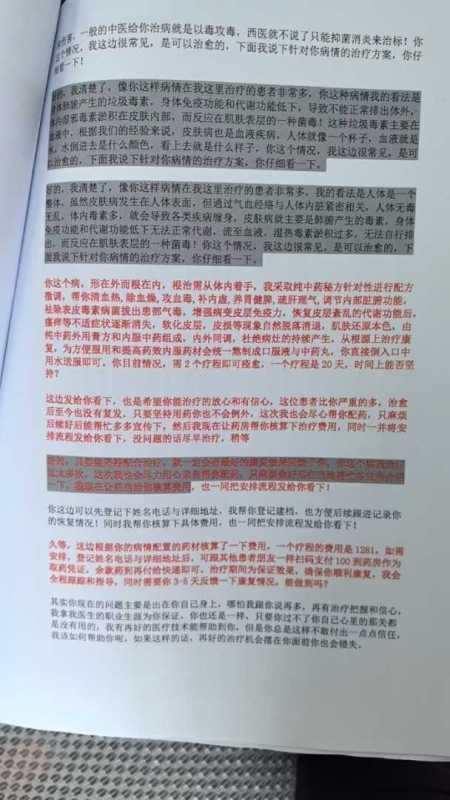 伤害，一般的中医给你治病就是以毒攻毒，西医就不说了只能抑菌消炎来治标！你
这个情况，我这边很常见，是可以治愈的，下面我说下针对你病情的治疗方案，你仔
细看一下！
好的，我清楚了，像你这样病情在我这里治疗的患者非常多，你这种病情我的看法是
体肺腑产生的垃圾毒素，身体免疫功能和代谢功能低下，导致不能正常排出体外，
内的湿邪毒素淤积在皮肤内部，而反应在肌肤表层的一种菌毒！这种垃圾毒素主要在
血液中，根据我们的经验来说，皮肤病也是血液疾病，人体就像一个杯子，血液就是
水，水倒进去是什么颜色，看上去就是什么样子，你这个情况，我这边很常见，是可
以治愈的，下面我说下针对你病情的治疗方案，你仔细看一下。
好的，我清楚了，像你这样病情在我这里治疗的患者非常多，我的看法是人体是一个
整体，虽然皮肤病发生在人体表面，但通过气血经络与人体内脏紧密相关，人体无毒
无乱，体内毒素多，就会导致各类疾病缠身，皮肤病就主要是肺腑产生的毒素，身体
免疫功能和代谢功能低下无法正常代谢，流至血液，湿热毒素淤积过多，无法自行排
出，而反应在肌肤表层的一种菌毒！你这个情况，我这边很常见，是可以治愈的，下
面我说下针对你病情的治疗方案，你仔细看一下。
你这个病，形在外而根在内，根治需从体内着手，我采取纯中药秘方针对性进行配方
微调，帮你清血热，除血燥，攻血毒，补内虚，养胃健脾，疏肝理气，调节内部脏腑功能，
祛除表皮毒素病菌拔出患部气毒，增强病变皮层免疫力，恢复皮层紊乱的代谢功能后，
瘙痒等不适症状逐渐消失，软化皮层，皮损等现象自然脱落消退，肌肤还原本色，由
纯中药外用膏方和内服中药组成，内外同调，杜绝病灶的持续产生，从根源上治疗康
复，为方便服用和提高药效内服药材会统一熬制成口服液与中药丸，你直接倒入口中
用水送服即可。你目前情况，需2个疗程即可痊愈，一个疗程是20天，时间上能否坚
持？
这边发给你看下，也是希望你能治疗的放心和有信心，这位患者比你严重的多，治愈
后至今也没有复发，只要坚持用药你也不会例外，这次我也会尽心帮你配药，只麻烦
后续好后能帮忙多多宣传下，然后我现在让药房帮你核算下治疗费用，同时一并将安
排流程发给你看下，没问题的话尽早治疗，稍等
一下，我现在让药房给你核算费用，也一同把安排流程发给你看下！
你这边可以先登记下姓名电话与详细地址，我帮你登记建档，也方便后续跟进记录你
的恢复情况！同时我帮你核算下具体费用，也一同把安排流程发给你看下！
久等，这边根据你的病情配置的药材核算了一下费用，一个疗程的费用是1281，如需
安排，登记姓名电话与详细地址后，可跟其他患者朋友一样扫码支付100到药房作为
取药凭证，余款药到再付给快递即可。治疗期间为保证效果，确保你顺利康复，我会
全程跟踪和指导，同时需要你3-5天反馈一下康复情况，能做到吗？
其实你现在的问题主要是出在你自己身上，哪怕我跟你说再多，再有治疗把握和信心，
我拿我医生的职业生涯为你保证，你也还是一样，只要你过不了你自己心里的那关都
是没有用的，我有再好的医疗技术能帮助到你，但是你总是这样不敢付出一点点信任，
我该如何帮助你呢，如果这样的话，再好的治疗机会摆在你面前你也会错失。